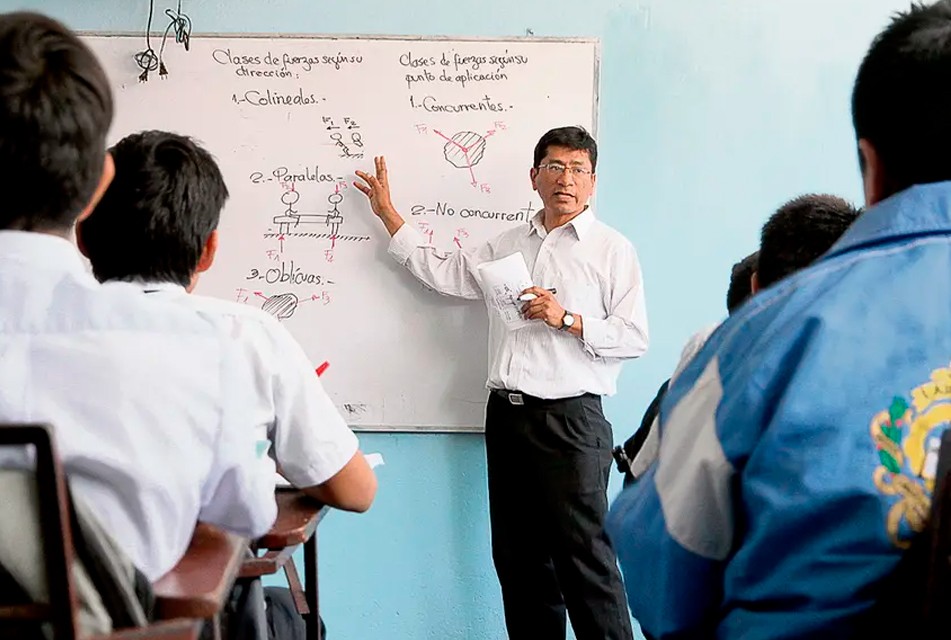 Clases de fuerzas según su
dirección:
1.-Colineales.-
F1 F2
2.-Paralelas.-
F1
3.-Oblícuas.-
F3
Clases de fuerzas según su
punto de aplicación
1.-Concurrentes.-
F1 F2
F3
2.-No concurrent